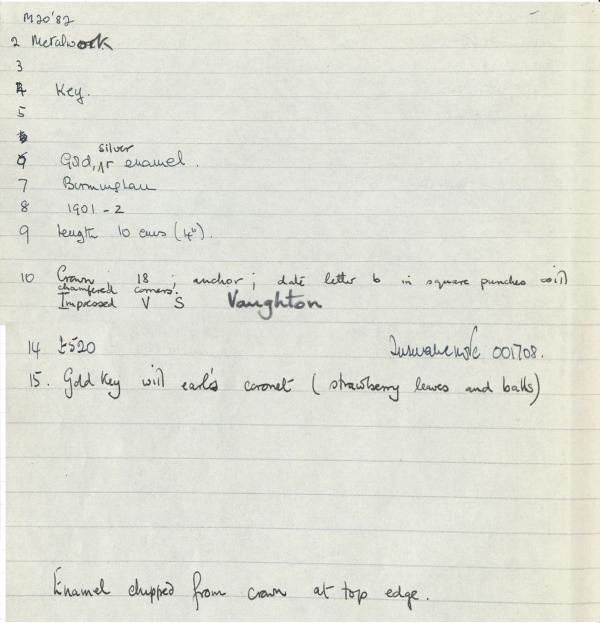 M20'82
2 Metalwork
3
4 Key.
5
silver
6 Gold, enamel.
7 Birmingham
8 1901-2
9 Length 10 cms (4").
10 Crown; 18; anchor; date letter b in square punches with
chamfered corners.
Impressed V S Vaughton
14 £520 001708.
15. Gold Key with earl's coronet (strawberry leaves and balls)
Enamel chipped from crown at top edge.